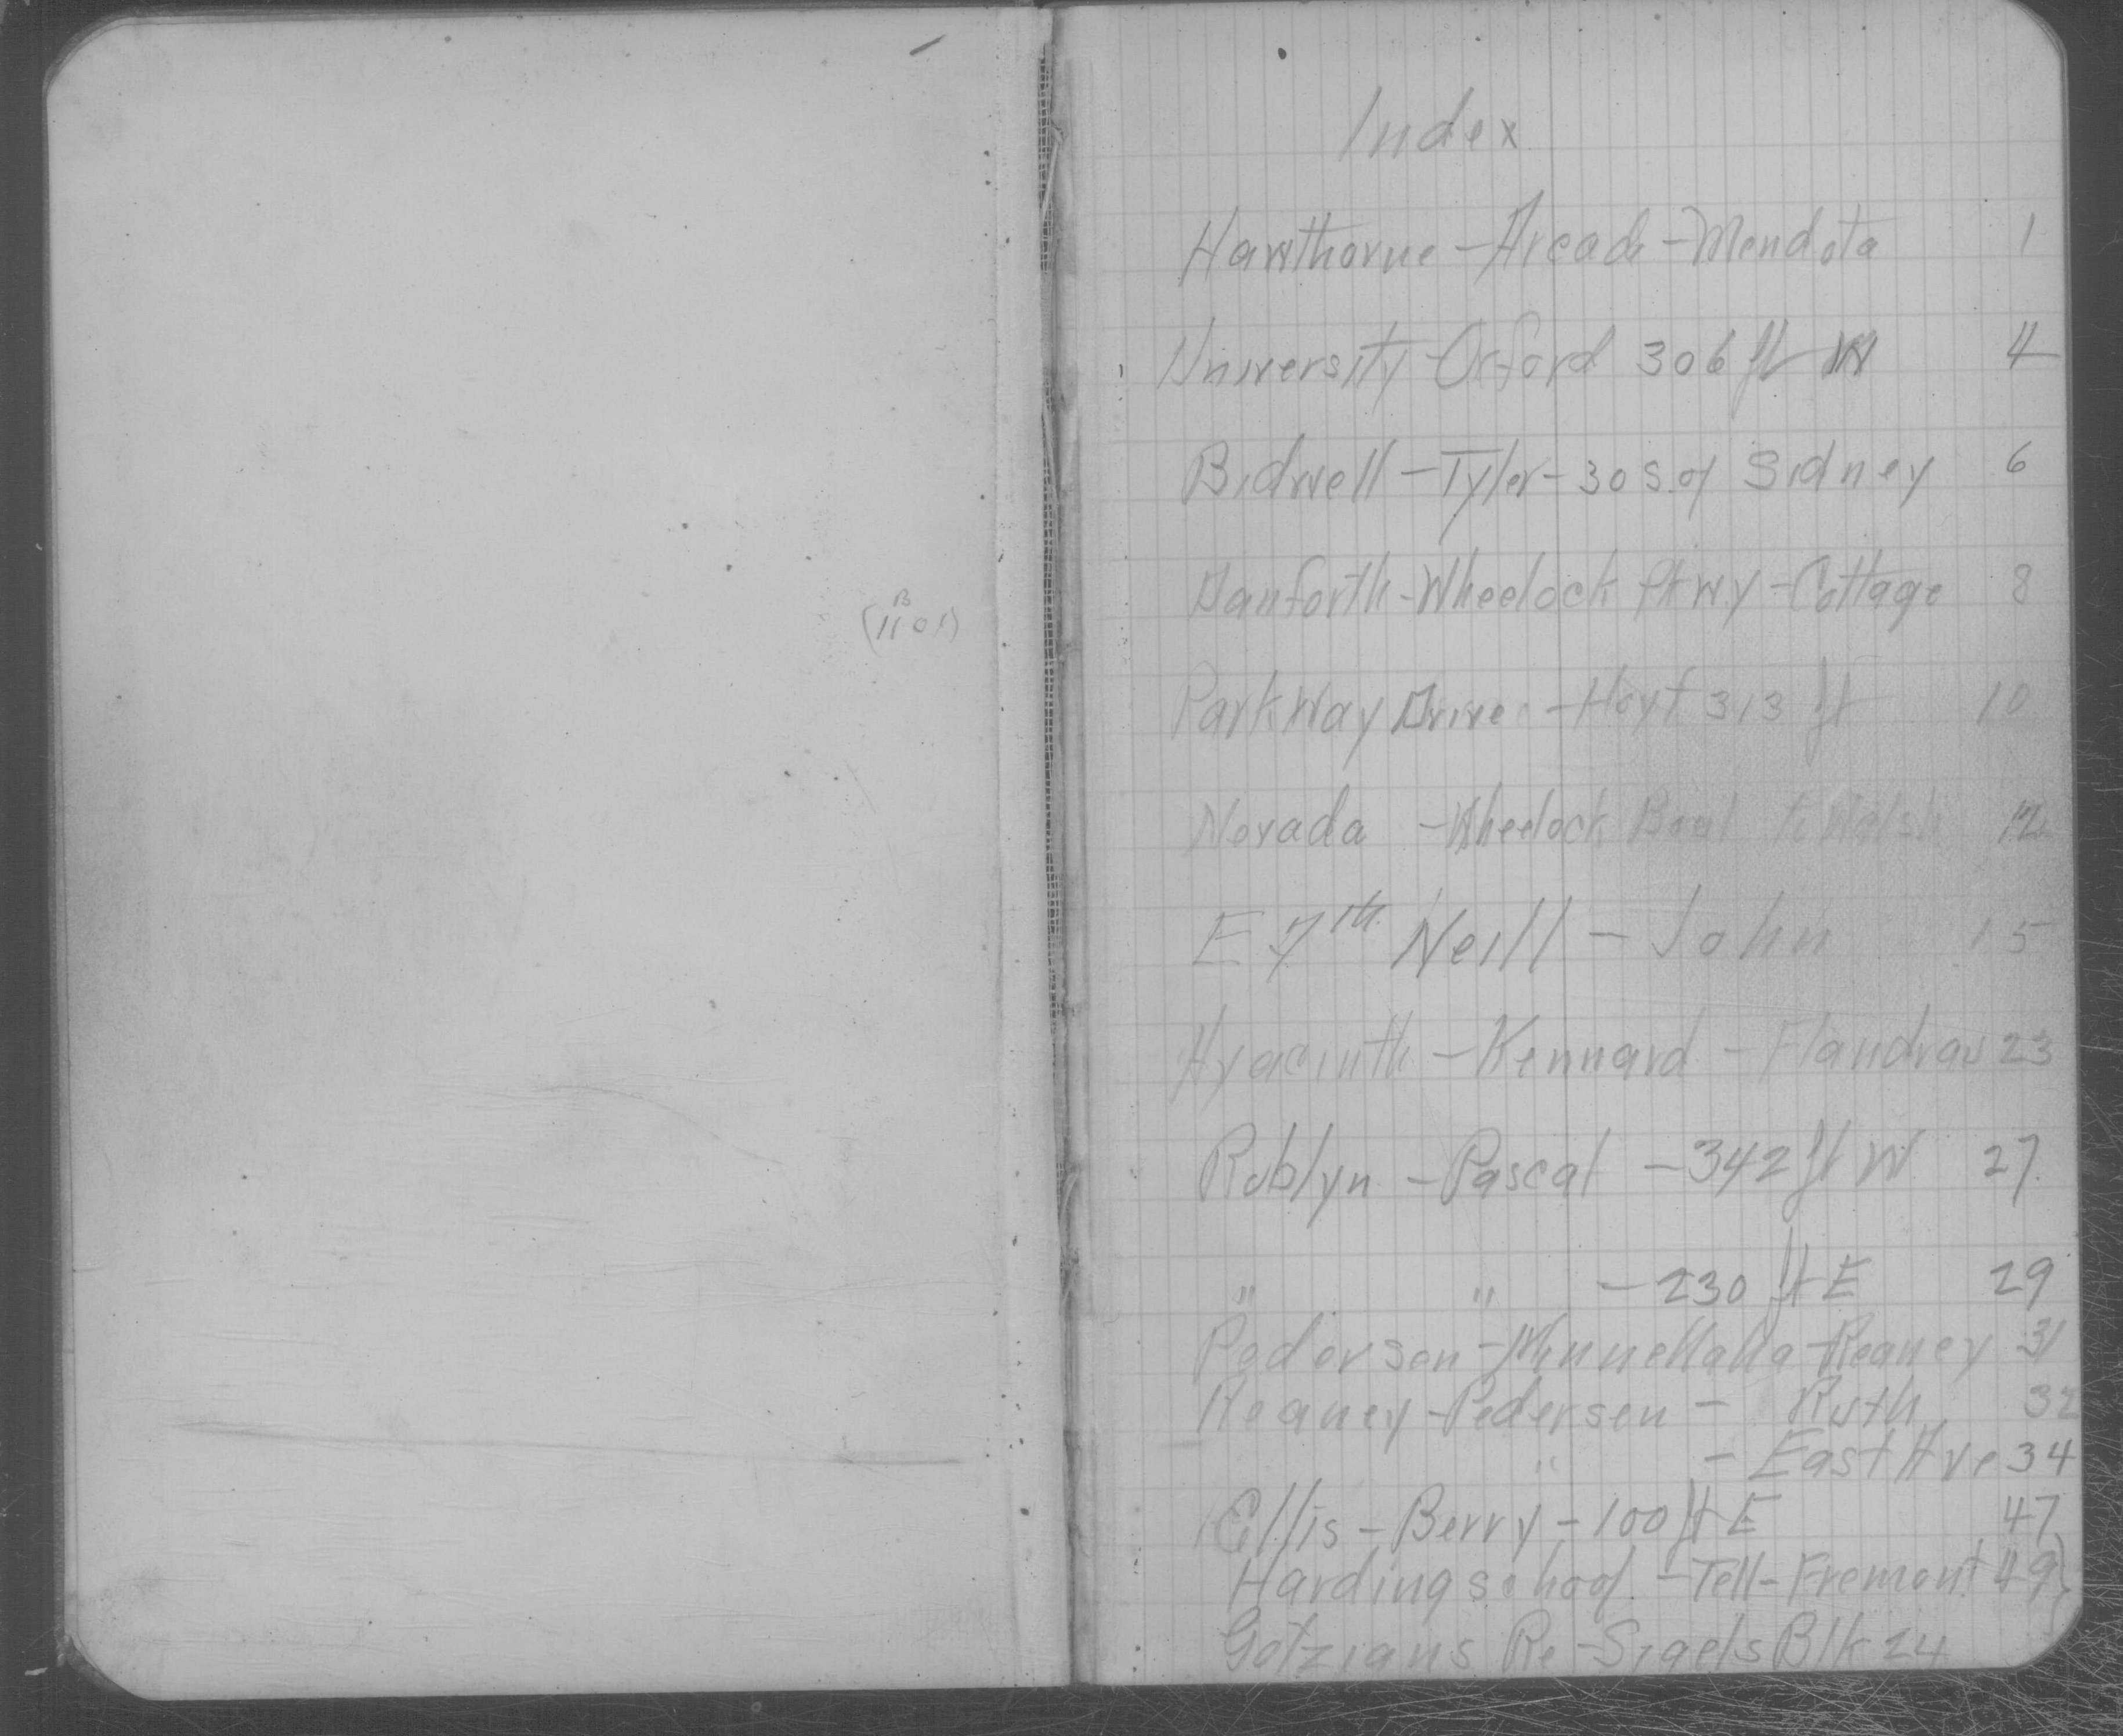 (11 01)
B
Index
Hawthorne - Arcade - Mendota 1
University - Oxford 306 ft W 4
Bidwell - Tyler - 30 S. of Sidney 6
Danforth - Wheelock Pkwy - Cottage 8
ParkWay Drive - Hoyt 313 ft 10
Nevada - Wheelock Boul to Walsh 12
E 7th Neill - John 15
Hyacinth - Kennard - Flandrau 23
Roblyn - Pascal - 342 ft W 27
" " - 230 ft E 29
Pedersen - Minnehaha - Reaney 31
Reaney - Pedersen - Ruth 32
" - East Ave 34
Ellis - Berry - 100 ft E 47
Harding school - Tell - Fremont 49}
Gotzians Re - Sigels Blk 24